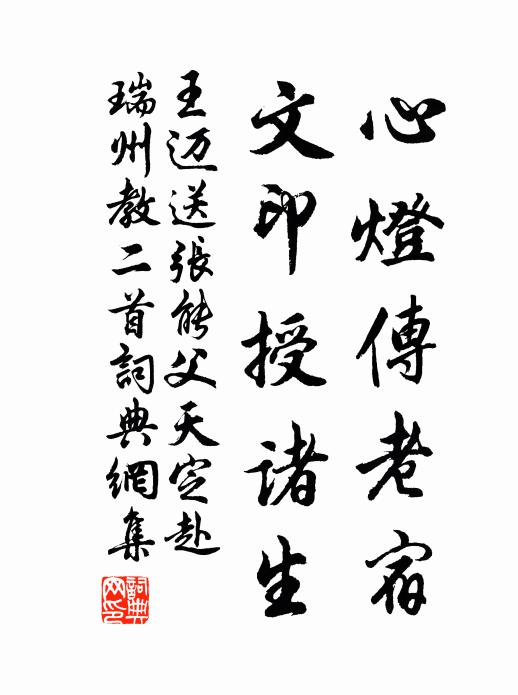 心燈傳老宿
文印授諸生
王迈送張能父天定赴
瑞州教二首詞典網集
詞典
网印